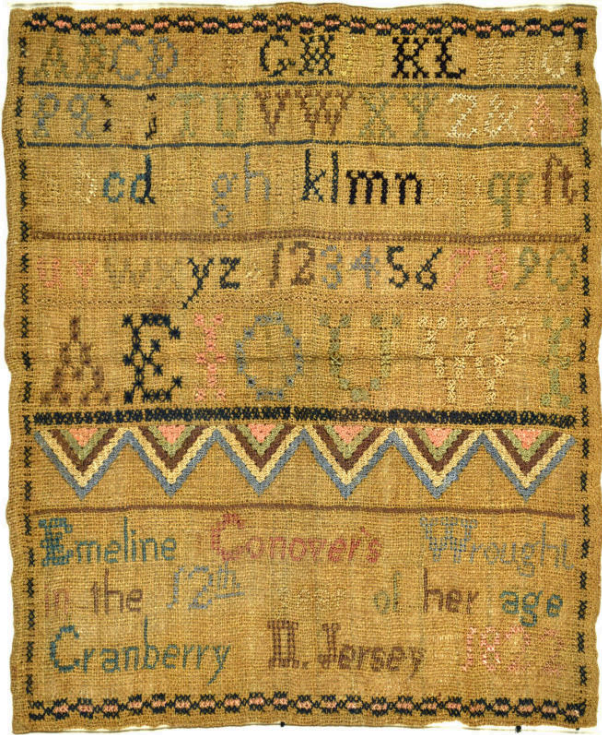 ABCD GH KL O
PQ TUVWXYZ&
cd gh klmn qrſt
uvwxyz 1234567890
AEIOUWY
Emeline Conover's Wrought
in the 12th of her age
Cranberry N. Jersey 1822